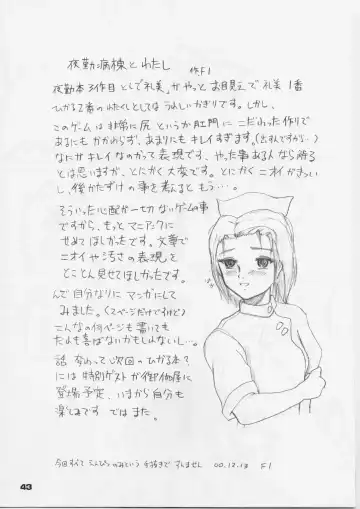 夜勤病棟とわたし 作F1
夜勤本3作目として"礼美"がやっとお目見えで 礼美 1番
ひかる2番のわたくしとしては うれしいかぎりです。しかし、
このゲームは 非常に尻 というか 肛門に こだわった作りで
あるにもかかわらず、あまりにもキレイすぎます。(出すんですから…)
なにがキレイなのかって表現です。やった事ある人なら解る
とは思いますが、とにかく大変です。とにかくニオイがきつい
し、後かたずけの事を考えると もう…。
そういった心配が一切ないゲームの事
ですから、もっとマニアックに
せめてほしかったです。文章で
ニオイや汚さの表現を
とことん見せてほしかったです。
んで自分なりに マンガにして
みました。(2ページだけですけど)
こんなの何ページも書いても
だれも喜ばないかもしれないし…。
話 変わって次回のひかる本?
には特別ゲストが御伽屋に
登場予定、いまから自分も
楽しみです ではまた。
今回すべて えんぴつのみという 手抜きで すいません 00.12.13 F1
43